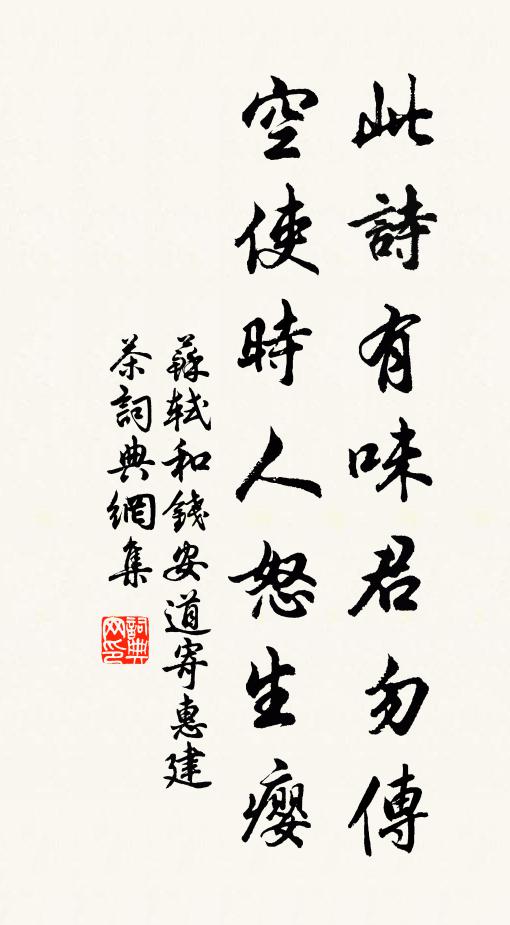 此詩有味君勿傳
空使時人怒生癭
蘇軾和錢安道寄惠建
茶詞典網集
詞典
网印